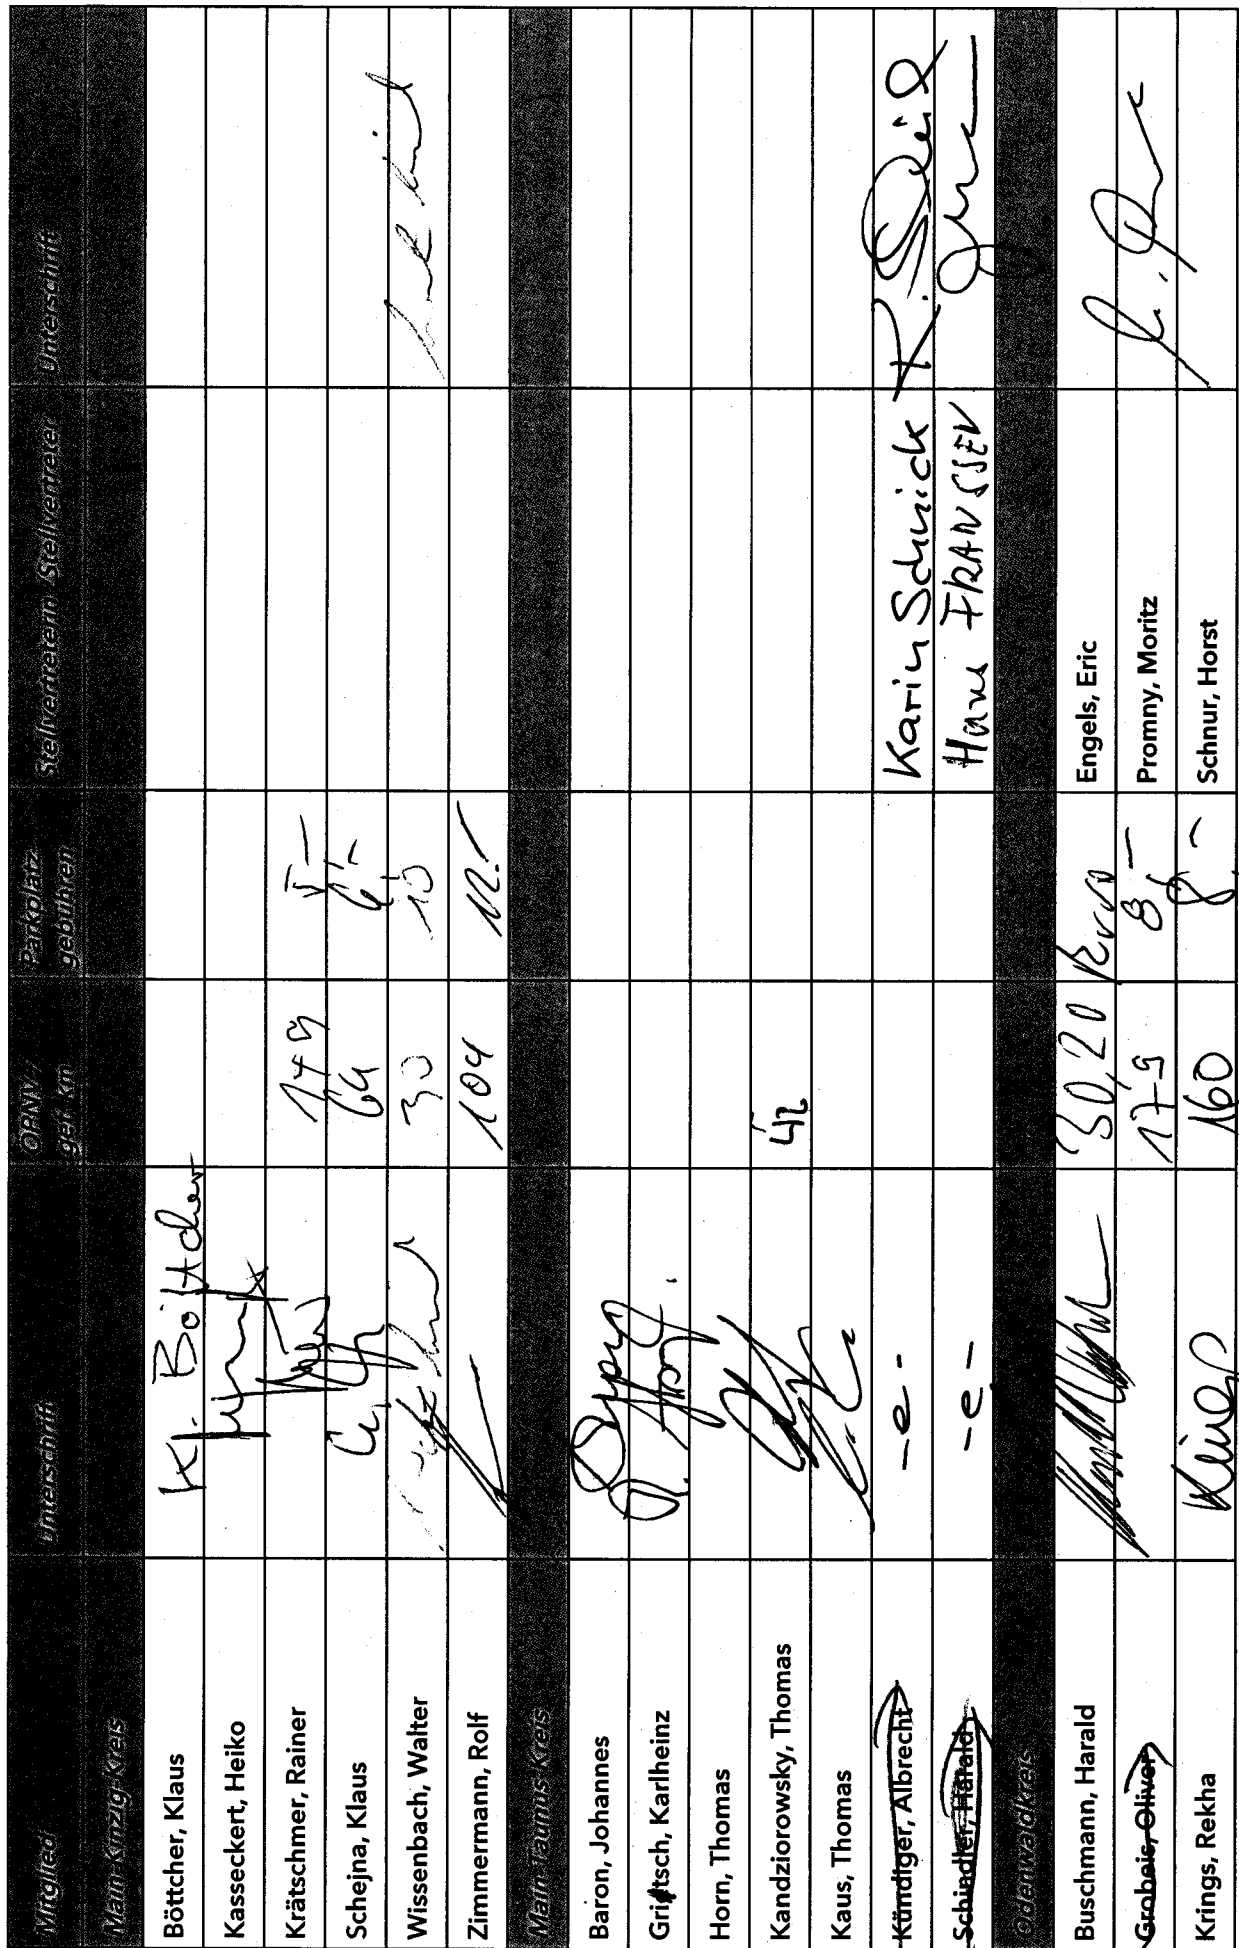 Mitglied Unterschrift ÖPNV / gef. km Parkplatz gebühren Stellvertreterin /Stellvertreter Unterschrift
Main-Kinzig-Kreis
Böttcher, Klaus K. Böttcher
Kasseckert, Heiko
Krätschmer, Rainer
Schejna, Klaus 64 6,-
Wissenbach, Walter 30 10
Zimmermann, Rolf 104 12.-
Main-Taunus-Kreis
Baron, Johannes
Gritsch, Karlheinz
Horn, Thomas
Kandziorowsky, Thomas 42
Kaus, Thomas
Kündiger, Albrecht -e- Karin Schnick
Schindler, Harald -e- Hans FRANSSEN
Odenwaldkreis
Buschmann, Harald 30,20 Engels, Eric
Grobeis, Oliver 179 8,- Promny, Moritz
Krings, Rekha Krings 160 8,- Schnur, Horst